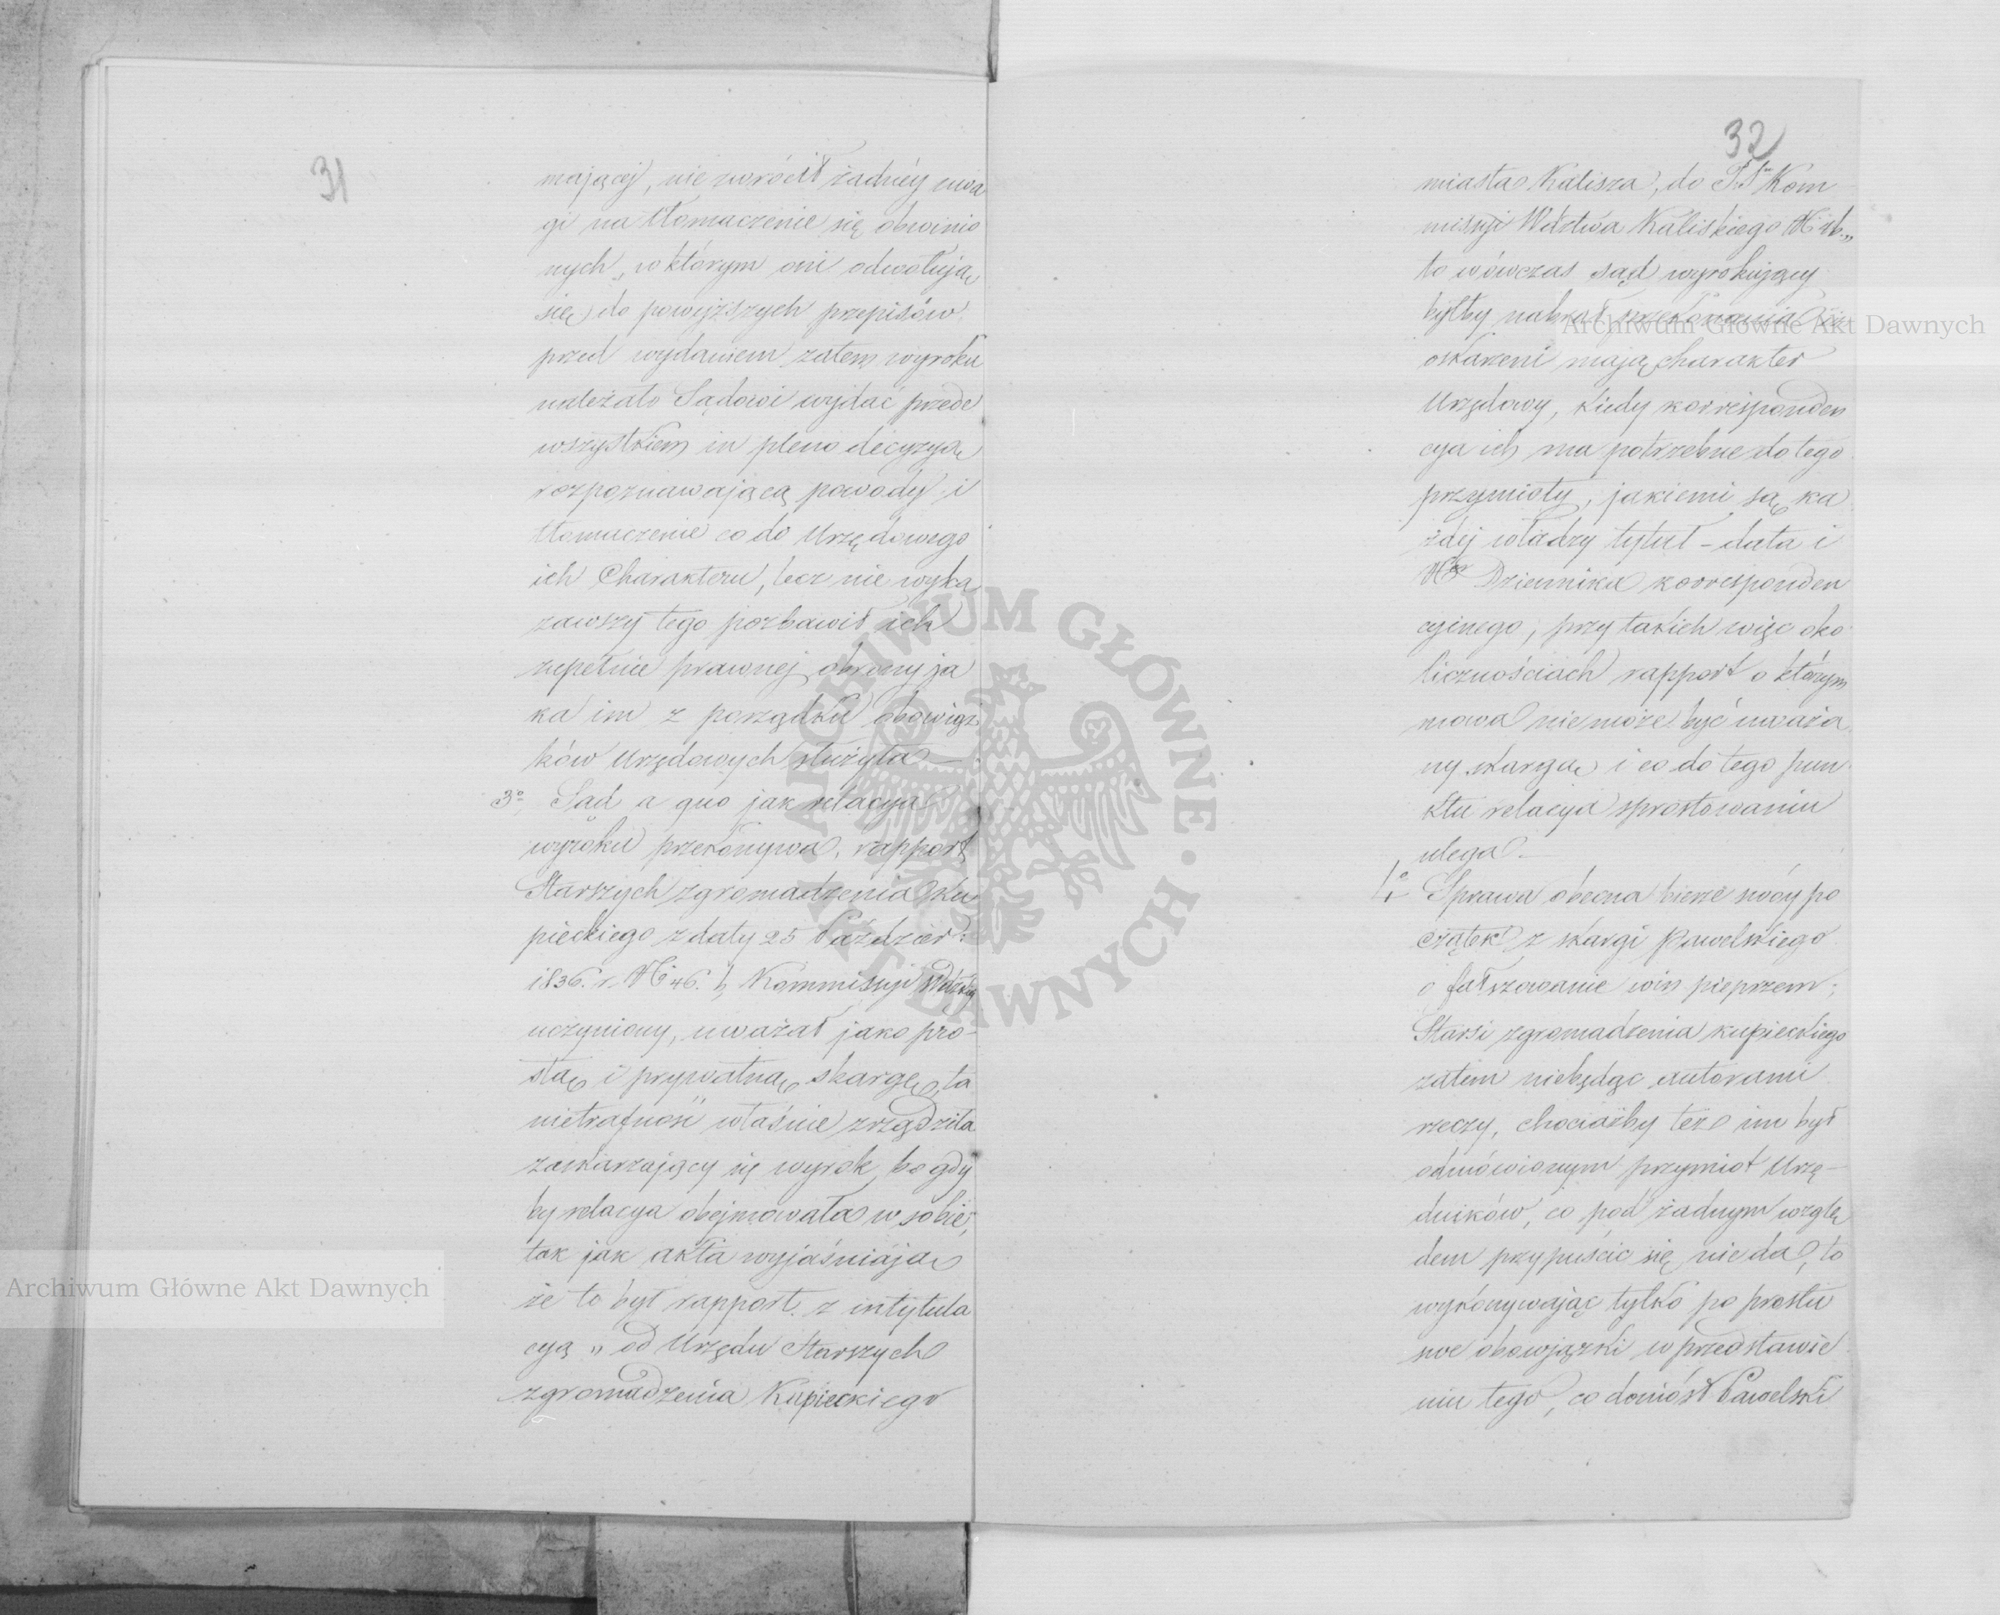 31
mającej, nie zwrócił żadnéy uwa
gi na tłomaczenie się obwinio
nych, w którym oni odwołują
się do powyższych przepisów,
przed wydaniem zatem wyroku
należało Sądowi wydać przede
wszystkiem in pleno decyzyą
rozpoznawającą powody i
tłomaczenie co do Urzędowego
ich Charakteru, lecz nie wyka
zawszy tego pozbawił ich
zupełnie prawnej obrony ja
ka im z porządku obowiąz
ków Urzędowych służyła —
3o, Sąd a quo jak relacya
wyroku przekonywa, rapport
Starszych zgromadzenia Ku
pieckiego z daty 25 Paździer:
1836. r. No 46. Kommisyi
uczyniony, uważał jako pro-
stą i prywatną skargę, ta
nietrafność właśnie zrządziła
zaskarzający się wyrok, bo gdy
by relacya obejmowała w sobie,
tak jak akta wyjaśniają
że to był rapport z intytula
cyą „ od Urzędu Starszych
zgromadzenia Kupieckiego
32
miasta Kalisza, do Kom
missyi Wdztwa Kaliskiego No 46.„
to wówczas sąd wyrokujący
byłby nabrał przekonania iż
oskarzeni mają charakter
Urzędowy, kiedy korresponden
cya ich ma potrzebne do tego
przymioty, jakiemi są ka
żdej władzy tytuł – data i
Nr Dziennika korresponden
cyjnego, przy takich więc oko
licznościach rapport o którym
mowa nie może być uważa
ny skargą i co do tego pun
ktu relacya sprostowaniu
ulega. —
4o Sprawa obecna bierze swóy po
czątek z skargi Pawelskiego
o fałszowanie win pieprzem;
Starsi zgromadzenia kupieckiego
zatem niebędąc autorami
rzeczy, chociażby też im był
odmówionym przymiot Urzę—
dników, co pod żadnym wzglę
dem przypuścić się nie da, to
wykonywając tylko po prostu
swe obowiązki w przedstawie
niu tego, co doniósł Pawelski
Archiwum Główne Akt Dawnych
Archiwum Główne Akt Dawnych
ARCHIWUM GŁÓWNE · AKT DAWNYCH ·